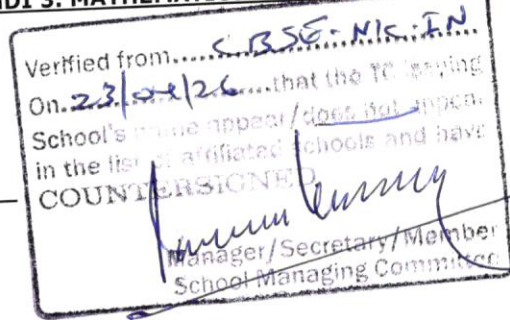 3. MATHEMAT
Verified from..... CBSE-NIC-IN
On..23/04/26.....that the TC issuing
School's name appear/does not appear
in the list of affiliated schools and have
COUNTERSIGNED
Manager/Secretary/Member
School Managing Committee